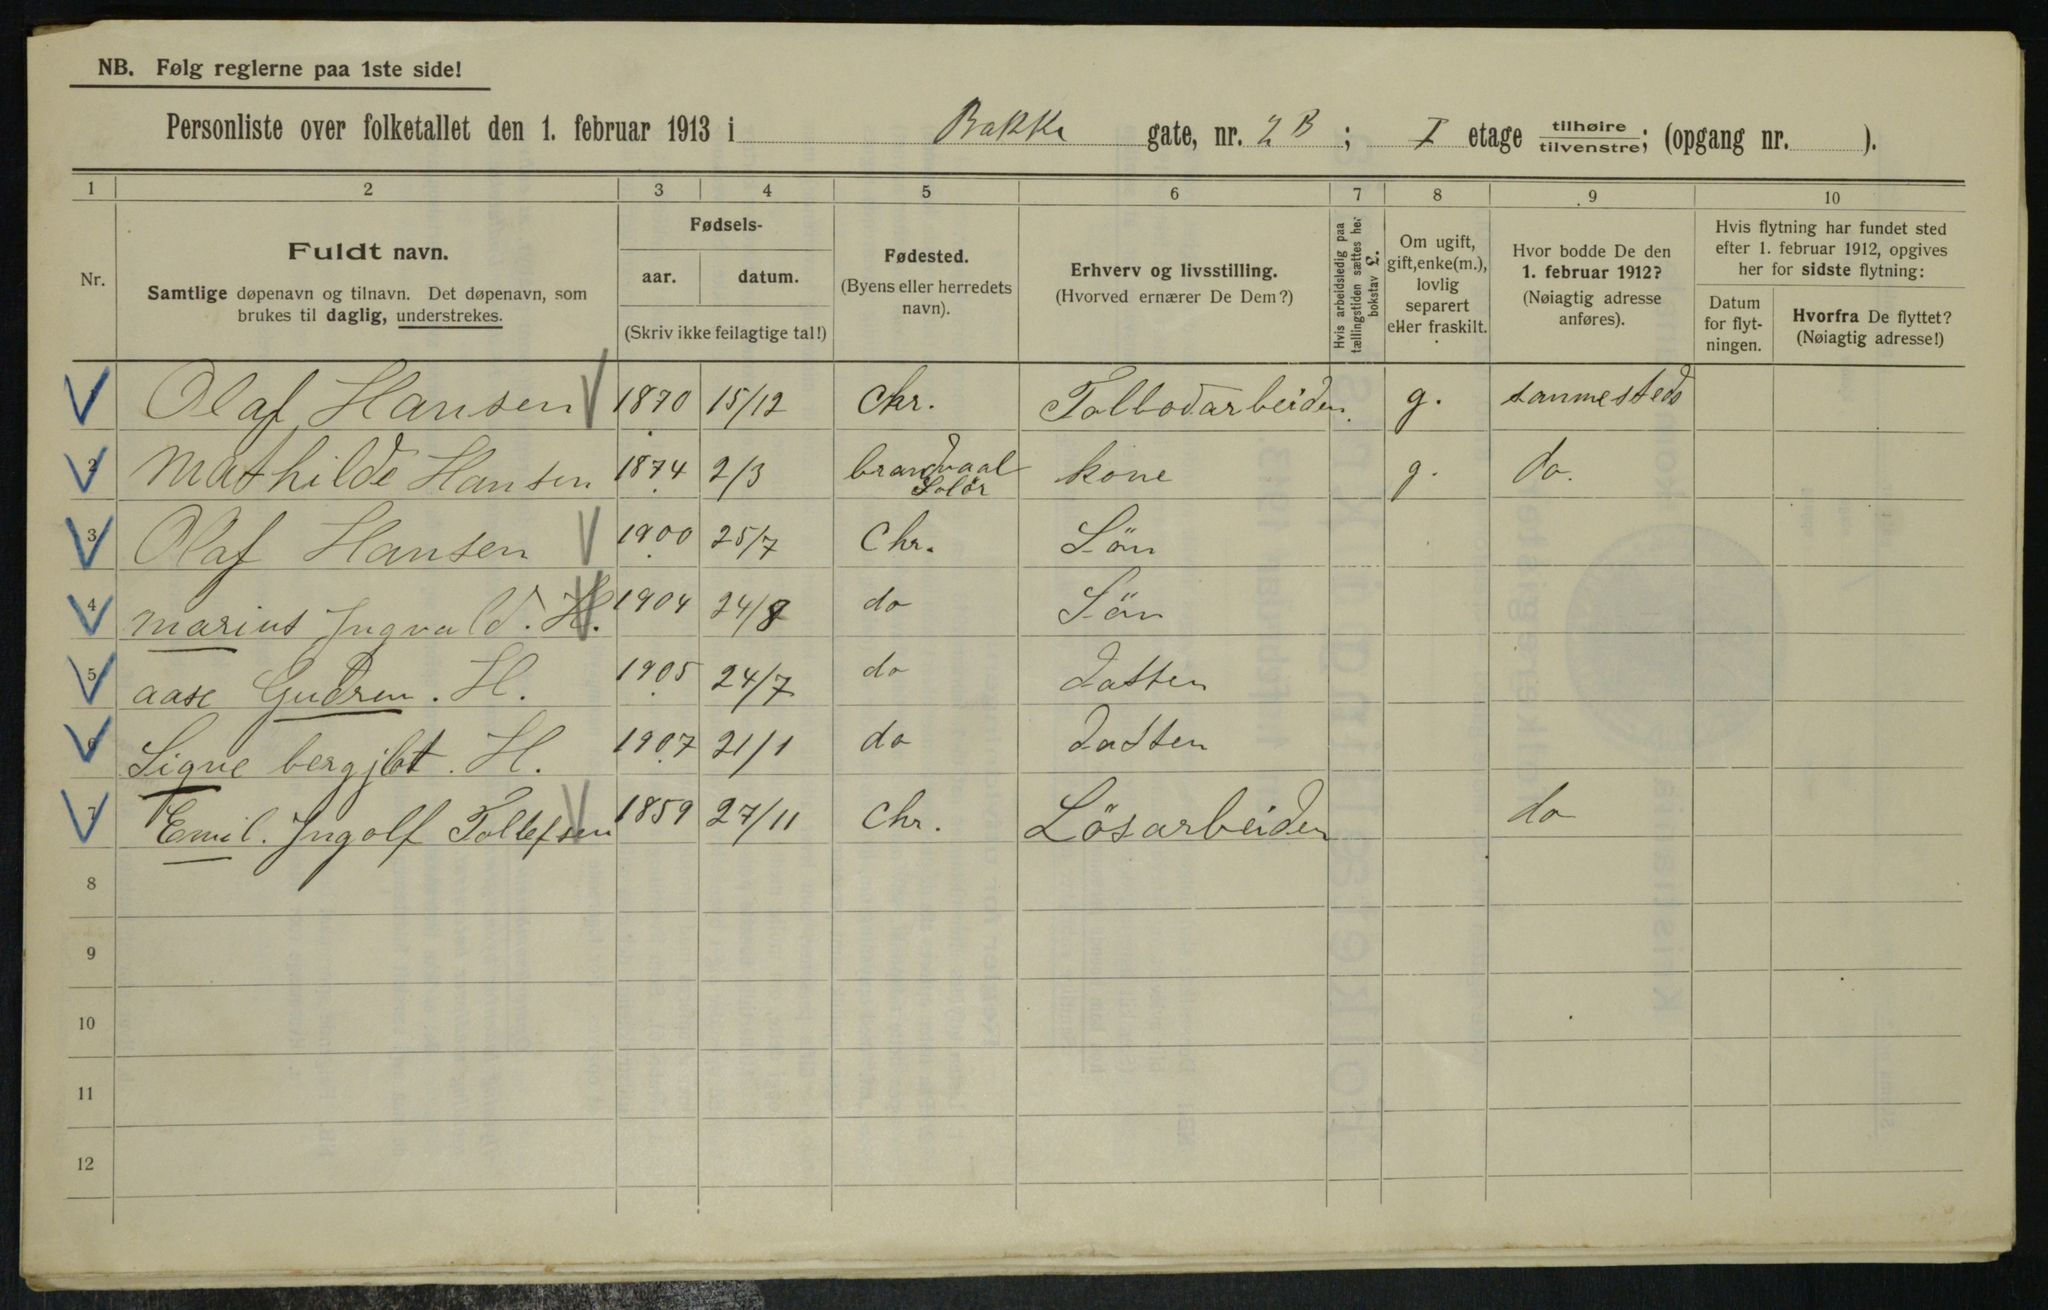 NB. Følg reglerne paa 1ste side!
Personliste over folketallet den 1. februar 1913 i Bakke gate, nr. 2 B ; I etage tilhøire / tilvenstre ; (opgang nr. ).
1 2 3 4 5 6 7 8 9 10
Nr.
Fuldt navn.
Samtlige døpenavn og tilnavn. Det døpenavn, som
brukes til daglig, understrekes.
Fødsels-
aar. datum.
(Skriv ikke feilagtige tal!)
Fødested.
(Byens eller herredets
navn).
Erhverv og livsstilling.
(Hvorved ernærer De Dem?)
Hvis arbeidsledig paa
tællingstiden sættes her
bokstav L.
Om ugift,
gift, enke(m.),
lovlig
separert
eller fraskilt.
Hvor bodde De den
1. februar 1912?
(Nøiagtig adresse
anføres).
Hvis flytning har fundet sted
efter 1. februar 1912, opgives
her for sidste flytning:
Datum
for flyt-
ningen.
Hvorfra De flyttet?
(Nøiagtig adresse!)
Olaf Hansen 1870 15/12 Chr. Tolbodarbeider g. sammesteds
2 Mathilde Hansen 1874 2/3 brandvaal Solör kone g. do.
3 Olaf Hansen 1900 25/7 Chr. Sön
4 Marius Ingvald. H. 1904 24/8 do Sön
5 aase Gudren. H. 1905 24/7 do Datten
6 Signe bergjlot. H. 1907 21/1 do Datten
7 Emil. Ingolf Tollefsen 1859 27/11 Chr. Lösarbeider do
8
9
10
11
12